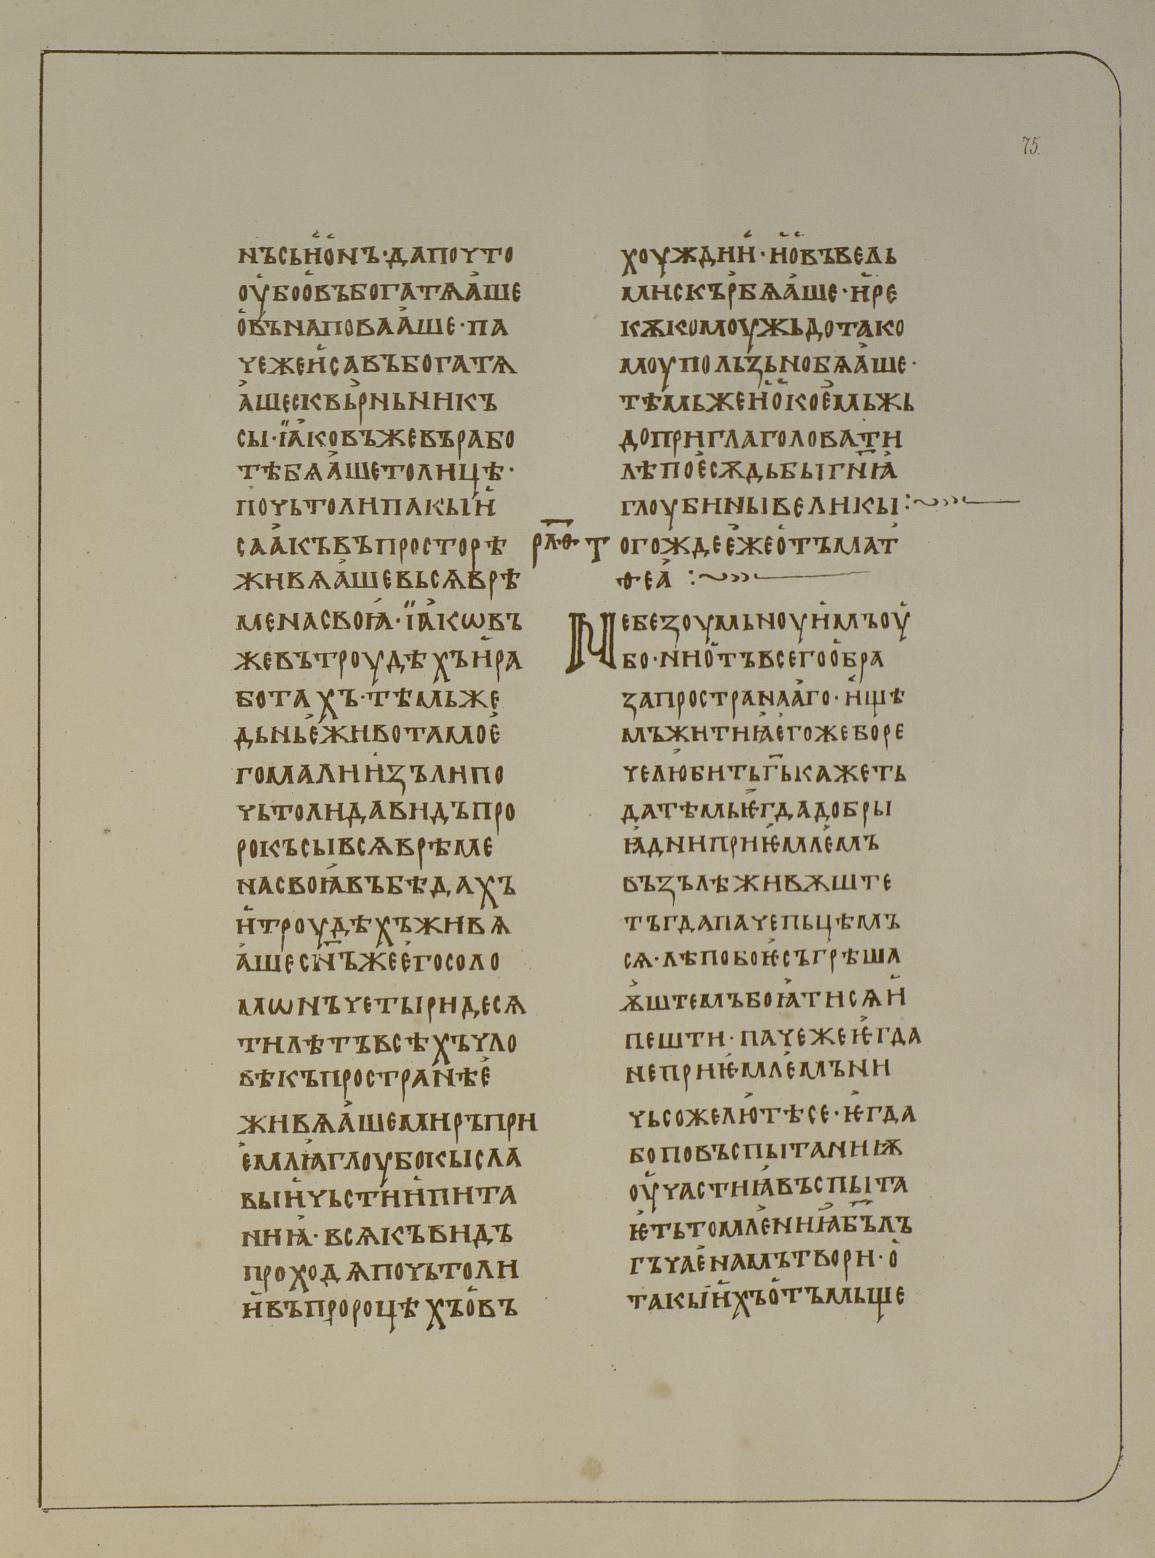 75
нъсьи҅о҅нъ·дапоуто
оу҅боо҅въбогатѧа҅ше
о҅въмапобаа҅ше·па
чежеи҅савъбогатѧ
а҅шесквьрньникъ
сы·ꙇа҅ковъжевърабо
тѣбѧа҅шетолицѣ·
почьтолипакыи҅
саа҅къвъпросторѣ
живѧа҅шевьсѧврѣ
менасвоꙗ҅·ꙇа҅кѡвъ
жевътроудѣхъи҅ра
ботахъ·тѣмьже
дьнье҅животамое҅
гомалии҅зълипо
чьтолидавидъпро
рокъсывсѧврѣме
насвоꙗ҅въбѣдахъ
и҅троудѣхъживѧ
а҅шесн҃ъжее҅госоло
мѡнъчетыридесѧ
тилѣтъвсѣхъчло
вѣкъпространѣе҅
живѧа҅шемиръпри
е҅млꙗ҅глоубокысла
выи҅чьстии҅пита
ниꙗ҅·всѧкъвидъ
проходѧпочьтоли
и҅въпророцѣхъо҅въ
хоуждии҅·и҅о҅въвель
мискърбѧа҅ше·и҅ре
кѫкомоужьдотако
моупользьнобѧа҅ше·
тѣмьжеи҅о҅кое҅мьжь
доприглаголовати
лѣпое҅сѫдьбыгн҃ꙗ҅
глоубинывеликы:~
рл҃ѳ· тогождее҅жео҅тъмат
ѳеа҅ :~
Небезоумьноуи҅мъоу҅
бо·нио҅тъвсегоо҅бра
запространаа҅го·и҅щѣ
мъжитиꙗ҅е҅гожеборе
челю҅битьг҃ькажеть
датѣмьѥ҅гдадобры
ꙗ҅днипри҅ѥмле҅мъ
възълѣживѫште
тъгдапачепьцѣмъ
сѧ·лѣпобоѥ҅съгрѣша
ѫ҅штемъбоꙗ҅тисѧи҅
пешти·пачежеѥ҅гда
непри҅ѥмле҅мъни
чьсожелю҅тѣсе·ѥ҅гда
боповъспытанниѭ
оу҅частиꙗ҅въспыта
ѥ҅тьтомле҅нниꙗ҅бъ҃лъ
гъчле҅намътвори·о҅
такыи҅хъо҅тъмьще